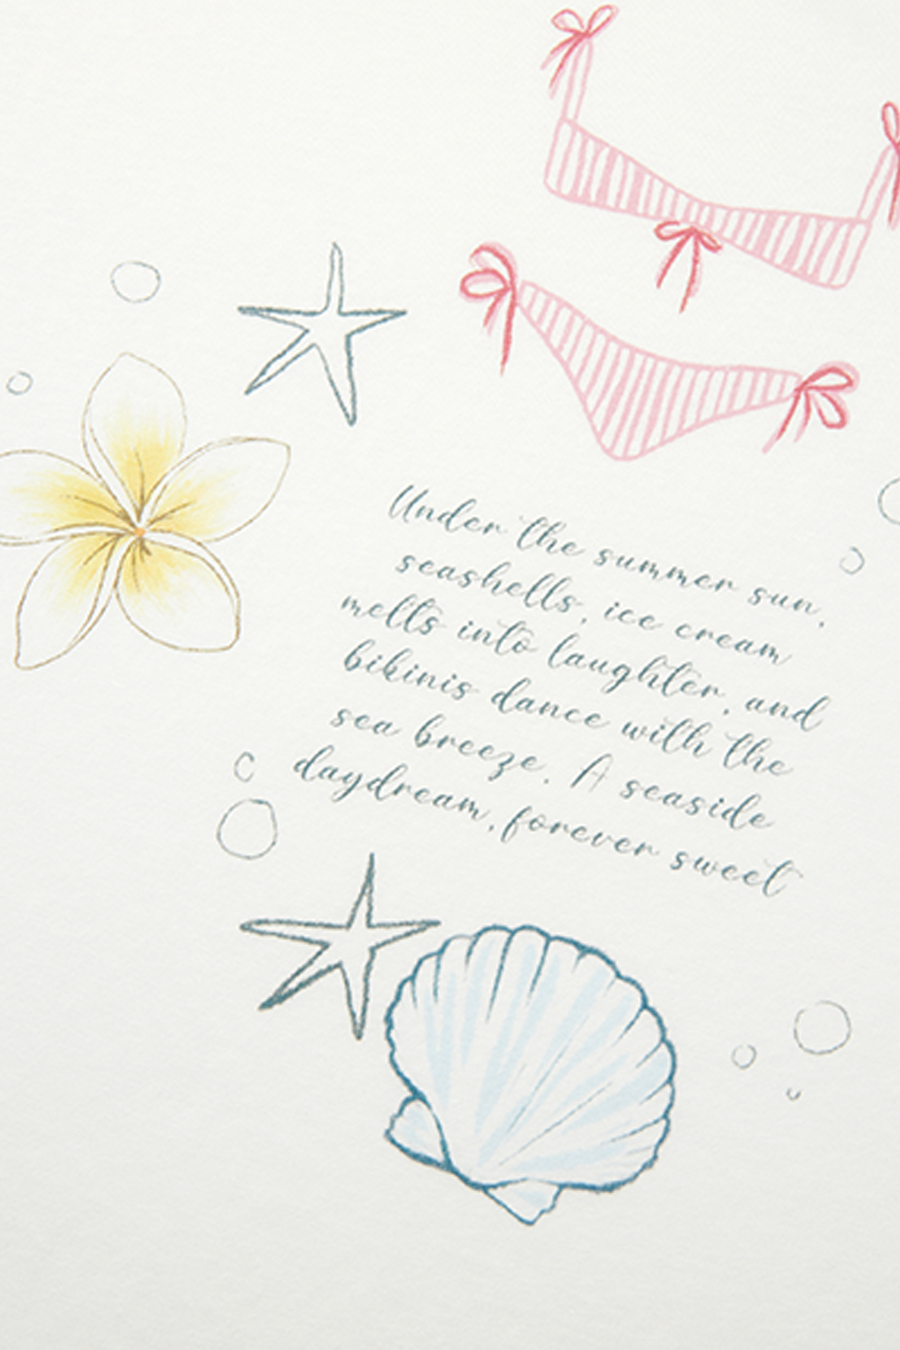 Under the summer sun,
seashells, ice cream
melts into laughter, and
bikinis dance with the
sea breeze. A seaside
daydream, forever sweet